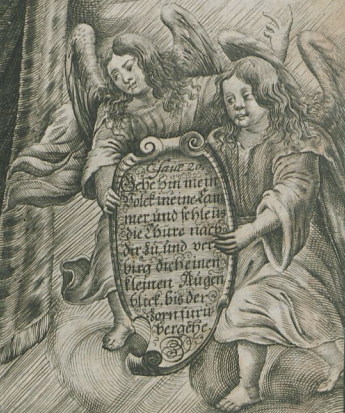 Gehe hin mein
Volck in eine Kam
mer und schleus
die Thüre nach
dir Zu, und ver
birg dich einen
kleinen Augen
blick, bis der
Zorn fürü
vergehe